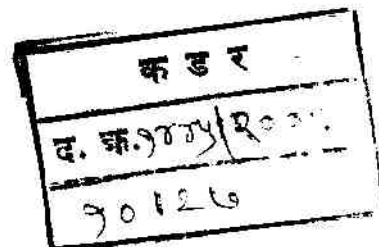 क ड र
द. क्र.१४४५/
१०/२७